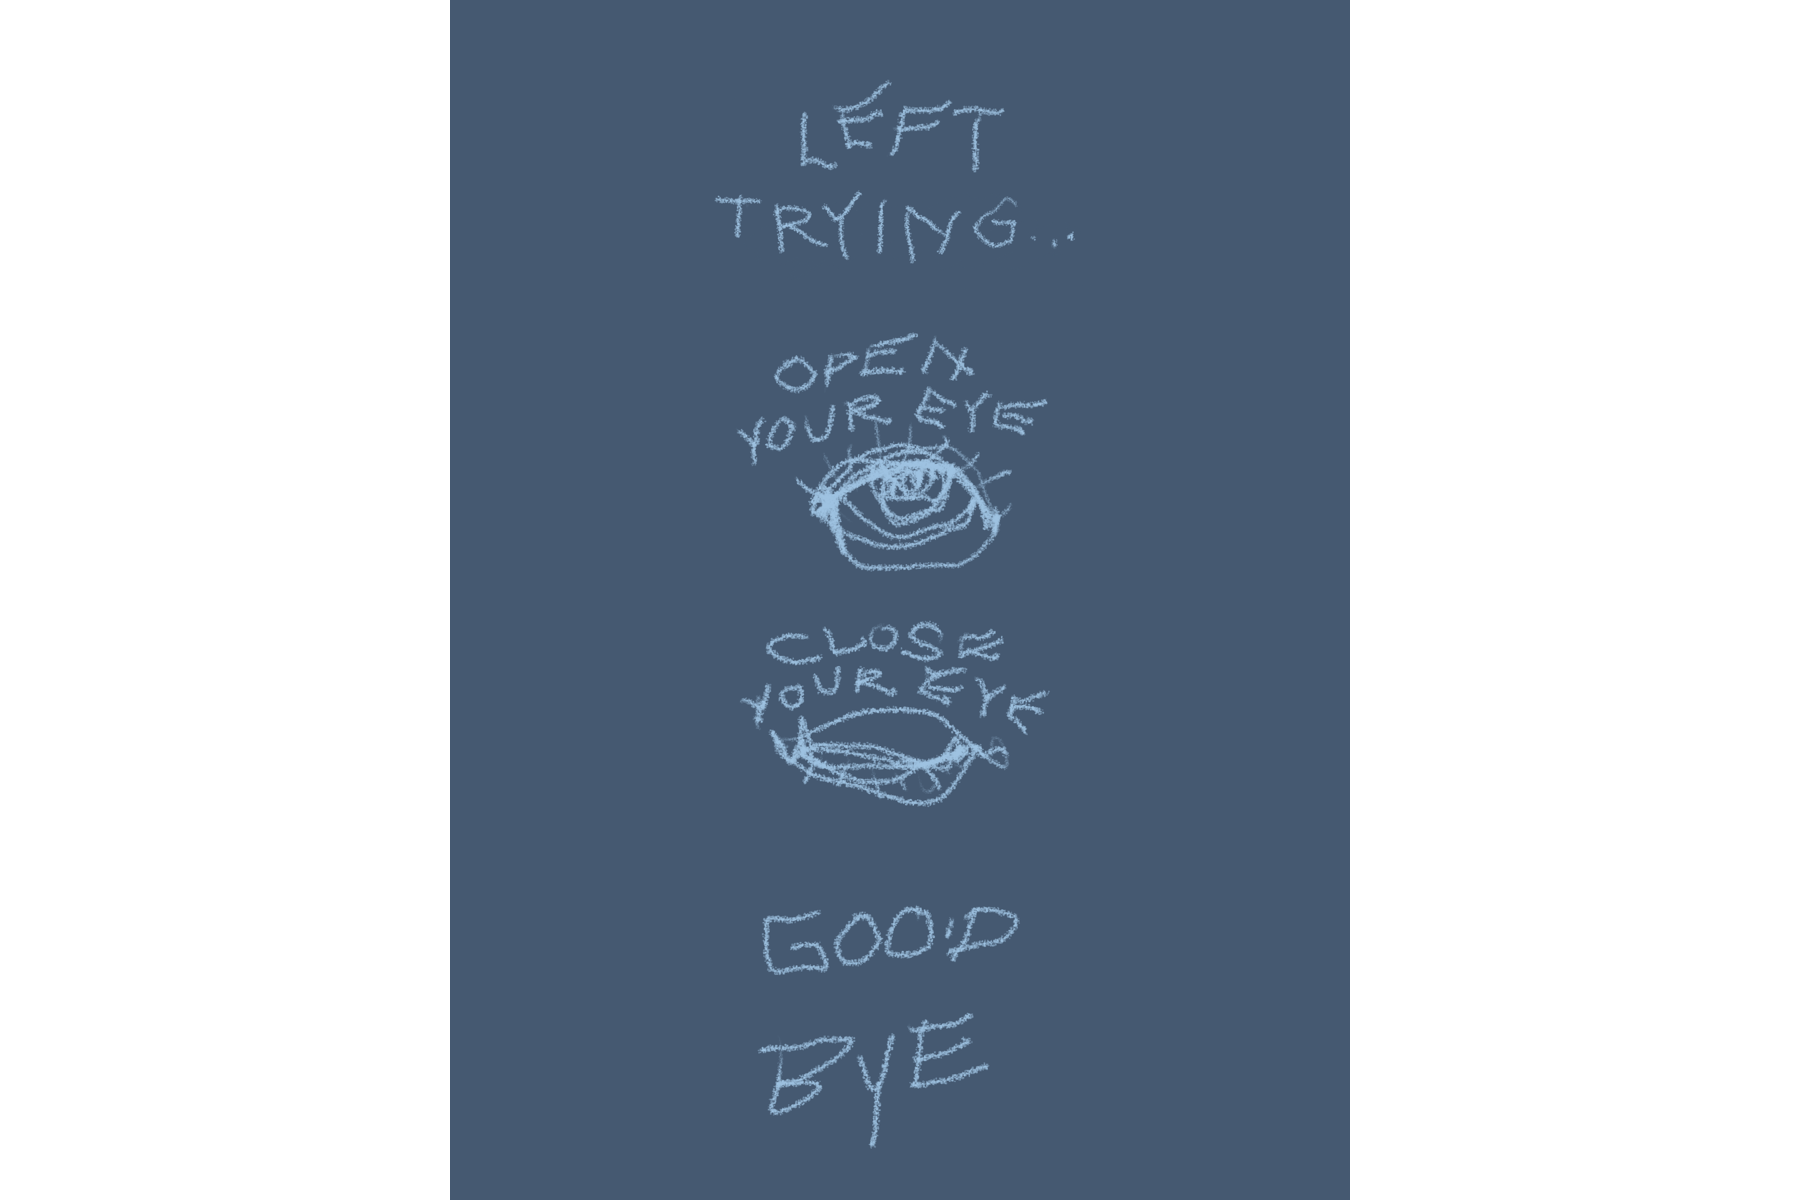 LEFT
TRYING...
OPEN
YOUR EYE
CLOSE
YOUR EYE
GOOD
BYE